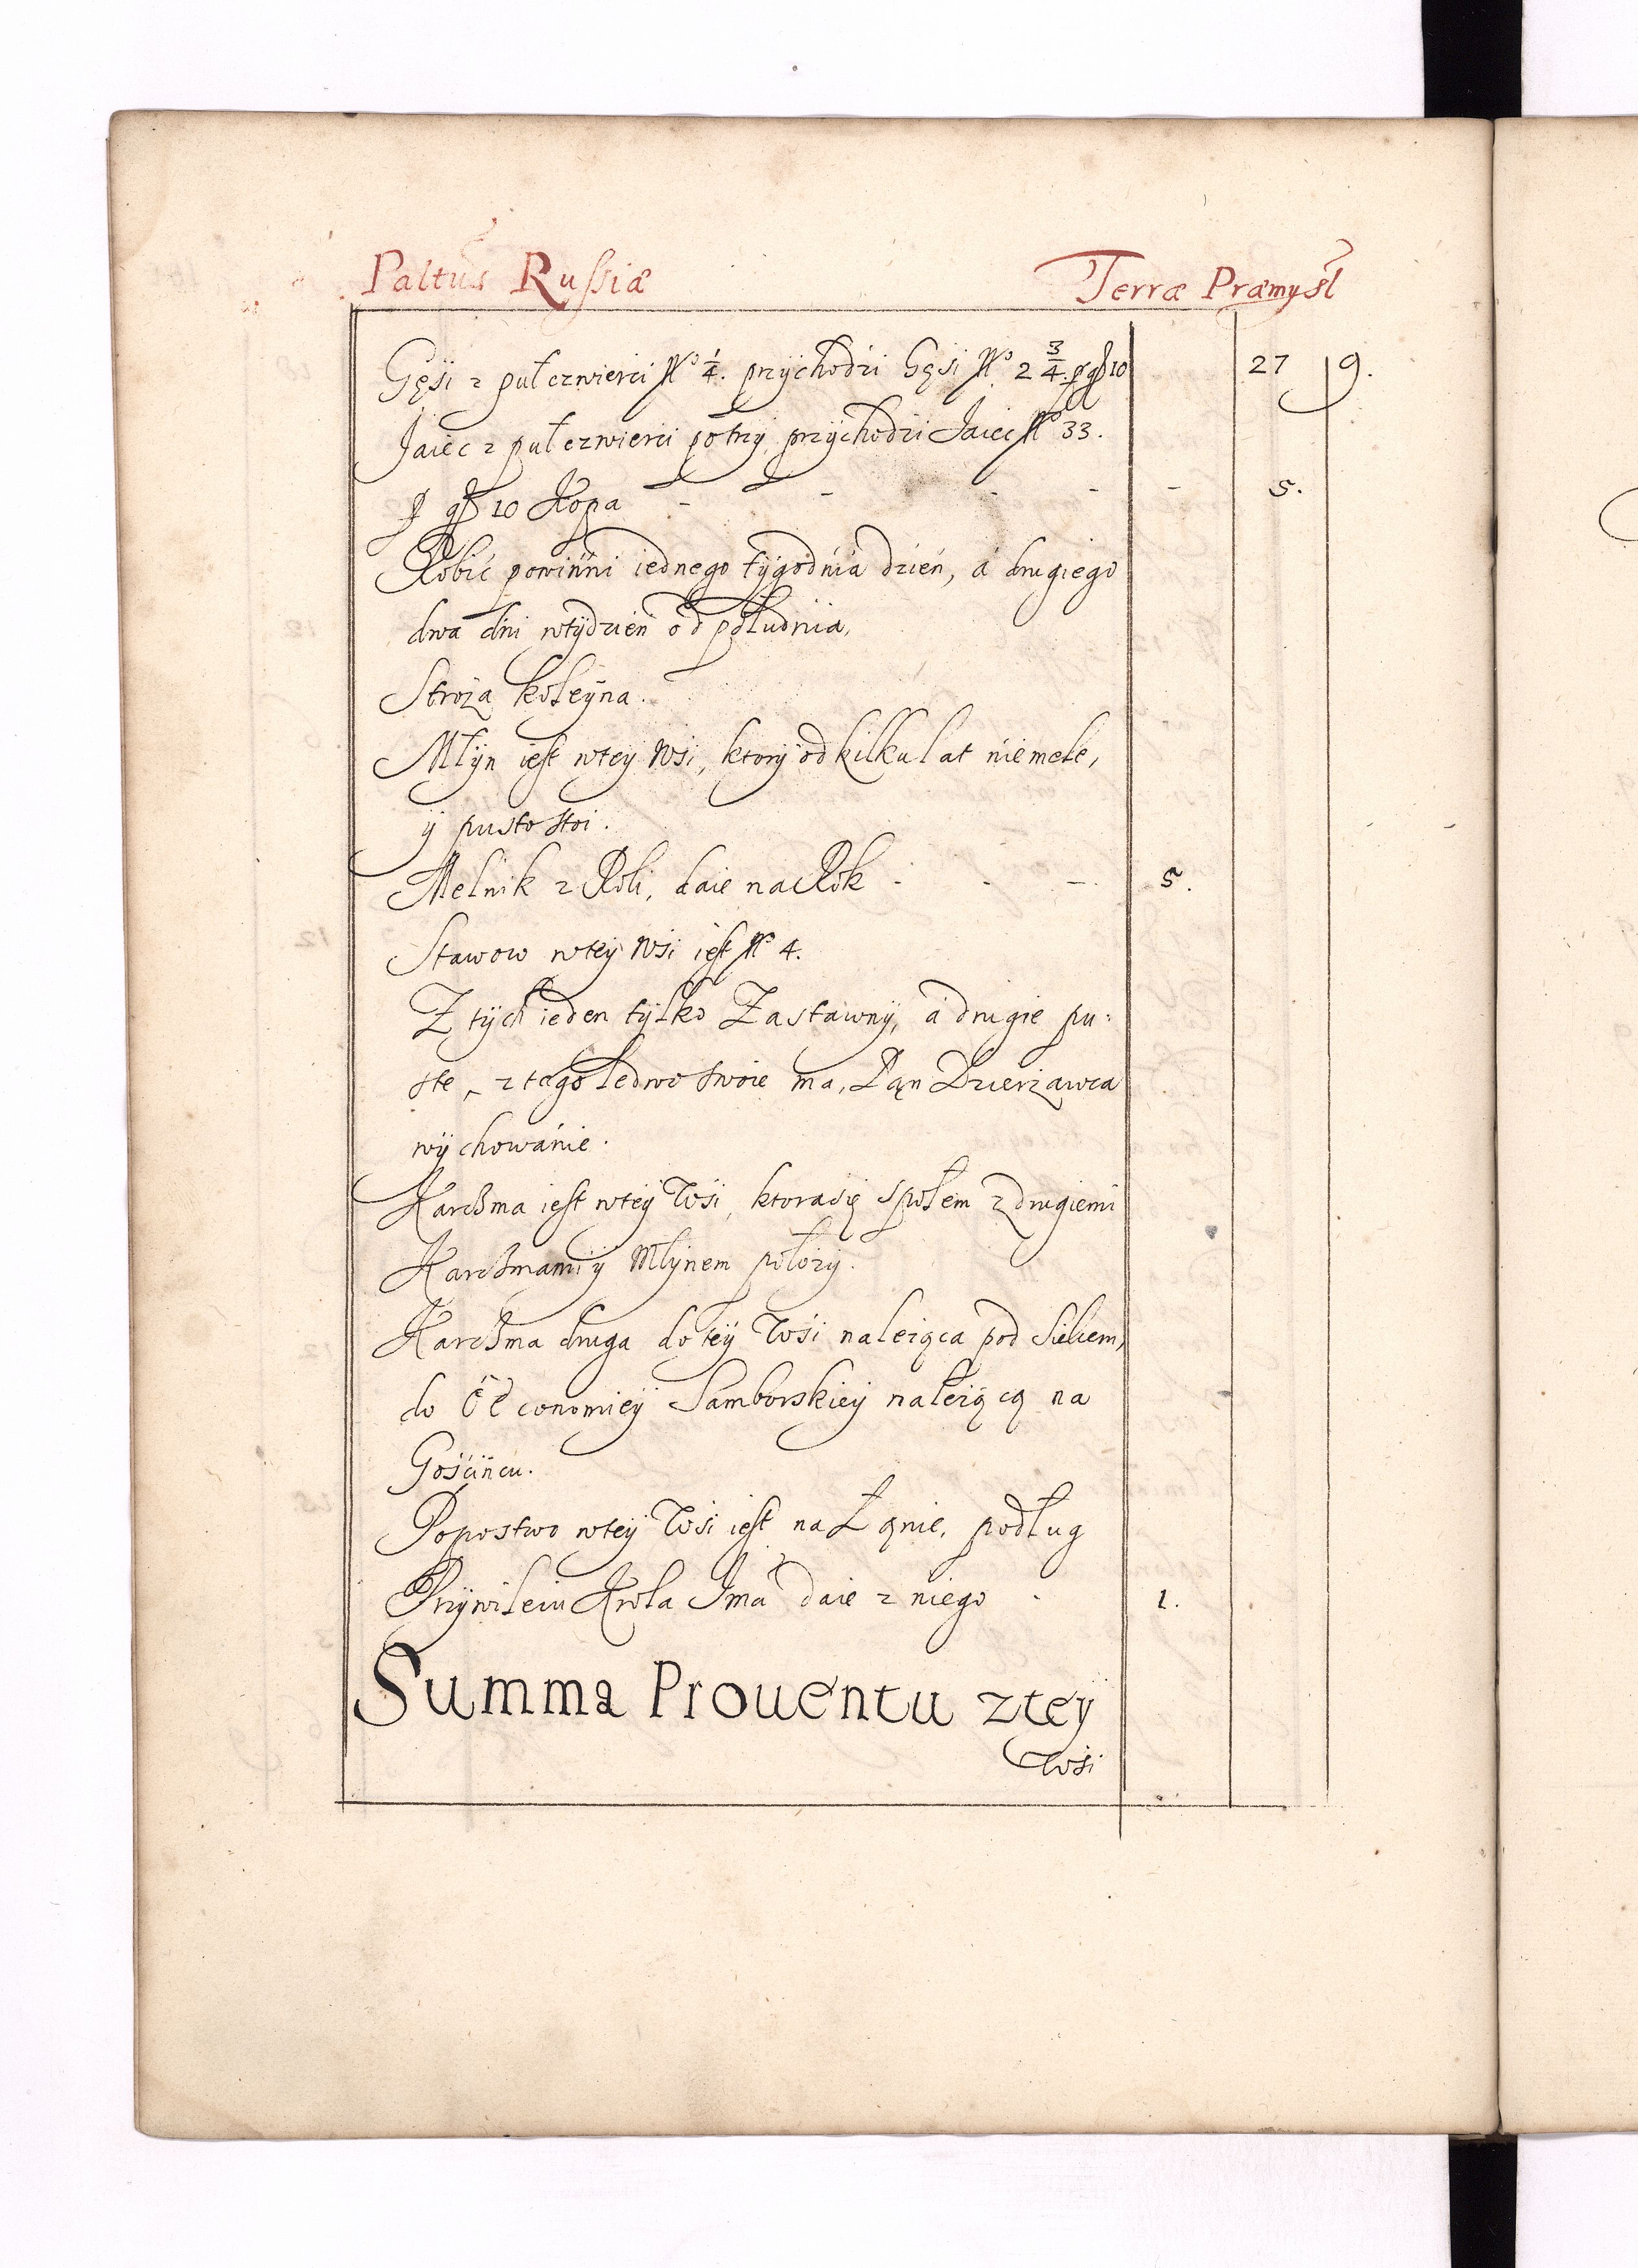 Paltus Russiæ Terræ Præmysl
Gęsi z pułczwierci No 1/4. przychodzi Gęsi No 2 3/4. p gr 10 27 9.
Jaiec z pułczwierci potrzy, przychodzi Jaiec No 33.
p gr 10 Kopa - - - - - 5.
Robić powinni iednego tygodnia dzień, a drugiego
dwa dni wtydzień od południa,
Stroża koleyna.
Młyn iest wtey Wsi, ktory od kilku lat niemele,
y pusto stoi.
Melnik z Roli, daie na Rok - - - 5.
Stawow wtey Wsi iest No 4.
Z tych ieden tylko Zastawny, a drugie pu-
ste, z tego ledwo swoie ma, Pan Dzierżawca
wychowanie.
Karczma iest wtey Wsi, ktora się społem z drugiemi
Karczmami y Młynem położy.
Karczma druga do tey Wsi należąca pod Sielcem,
do Oeconomiey Samborskiey należącą na
Gościńcu.
Popostwo wtey Wsi iest na Łanie, podług
Przywileiu Krola Jma daie z niego - 1.
Summa Prouentu ztey
Wsi